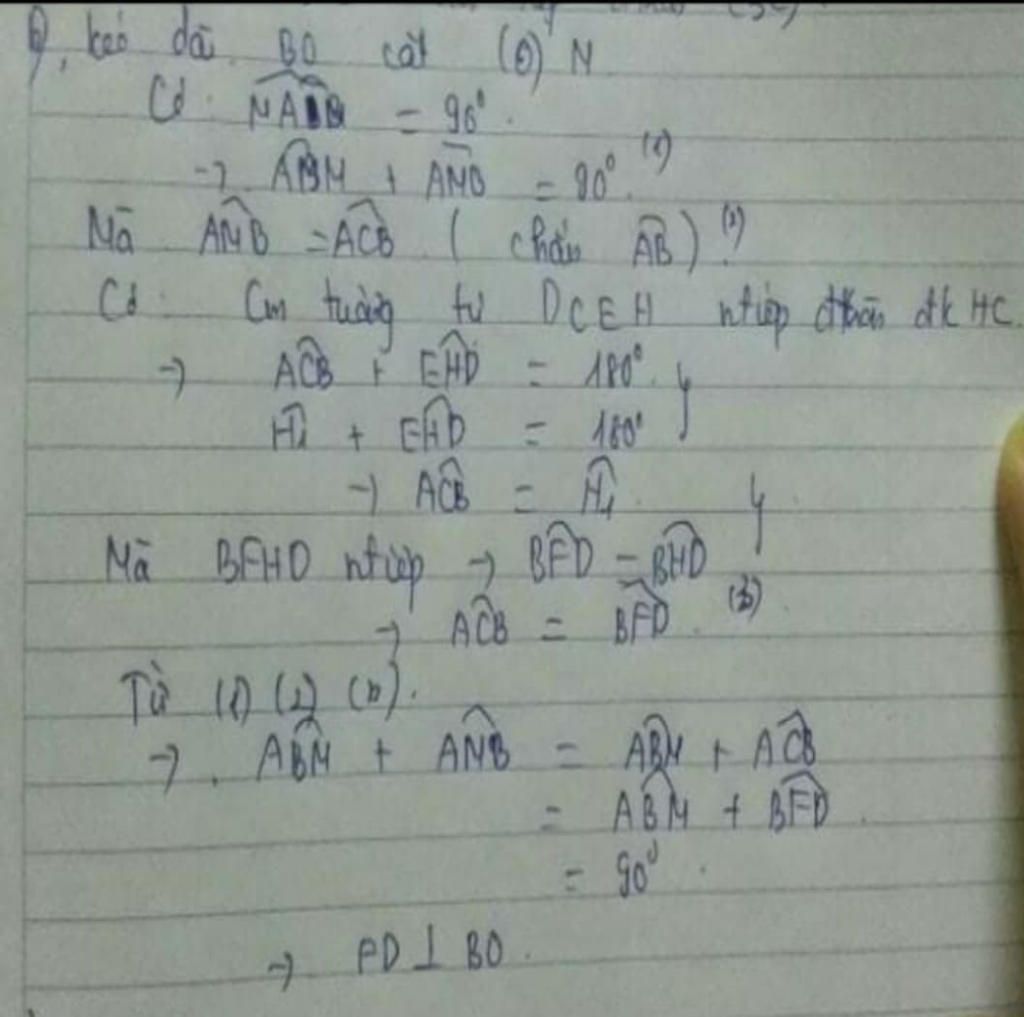 b, kéo dài BO cắt (O) N
Có: NAB = 90°.
→ ABM + AMB = 90°. (1)
Mà AMB = ACB ( chắn AB ) (2)
Có: Cm tương tự DCEH ntiếp đk HC.
→ ACB + EHD = 180°. }
H₁ + EHD = 180°
→ ACB = H₁. }
Mà BFHD ntiếp → BFD = BHD
→ ACB = BFD. (3)
Từ (1) (2) (3).
→ ABM + AMB = ABM + ACB
= ABM + BFD.
= 90°.
→ FD ⊥ BO.